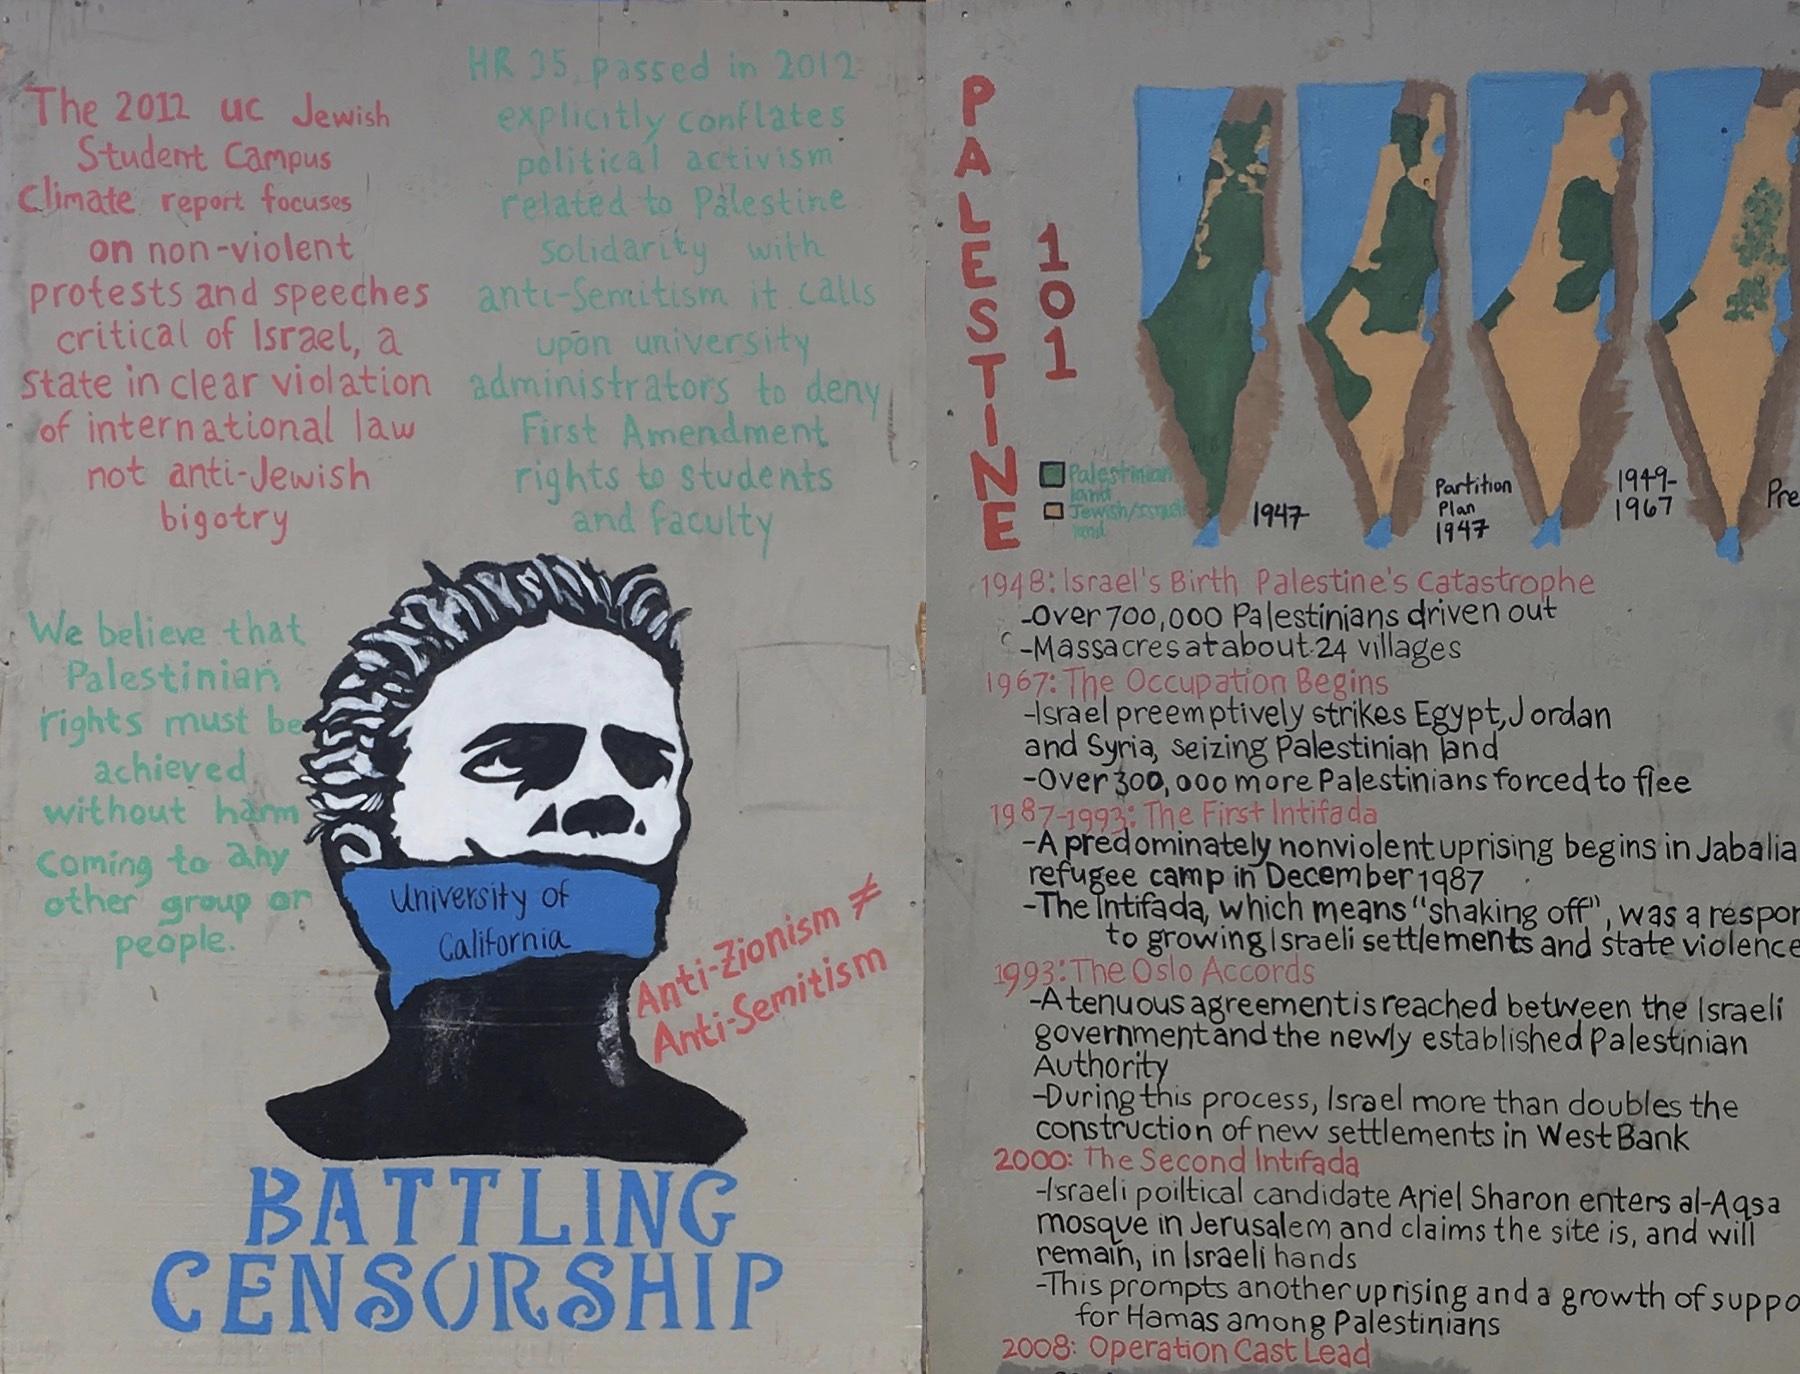 The 2012 UC Jewish
Student Campus
Climate report focuses
on non-violent
protests and speeches
critical of Israel, a
state in clear violation
of international law
not anti-Jewish
bigotry
HR 35, passed in 2012
explicitly conflates
political activism
related to Palestine
solidarity with
anti-Semitism it calls
upon university
administrators to deny
First Amendment
rights to students
and faculty
We believe that
Palestinian
rights must be
achieved
without harm
coming to any
other group or
people.
University of
California
Anti-Zionism ≠
Anti-Semitism
BATTLING
CENSORSHIP
PALESTINE
101
Palestinian
land
Jewish/Israeli
land
1947
Partition
Plan
1947
1949-
1967
Pre
1948: Israel's Birth Palestine's Catastrophe
-Over 700,000 Palestinians driven out
-Massacres at about 24 villages
1967: The Occupation Begins
-Israel preemptively strikes Egypt, Jordan
and Syria, seizing Palestinian land
-Over 300,000 more Palestinians forced to flee
1987-1993: The First Intifada
-A predominately nonviolent uprising begins in Jabalia
refugee camp in December 1987
-The Intifada, which means "shaking off", was a respon
to growing Israeli settlements and state violence
1993: The Oslo Accords
-A tenuous agreement is reached between the Israeli
government and the newly established Palestinian
Authority
-During this process, Israel more than doubles the
construction of new settlements in West Bank
2000: The Second Intifada
-Israeli poiltical candidate Ariel Sharon enters al-Aqsa
mosque in Jerusalem and claims the site is, and will
remain, in Israeli hands
-This prompts another uprising and a growth of suppo
for Hamas among Palestinians
2008: Operation Cast Lead